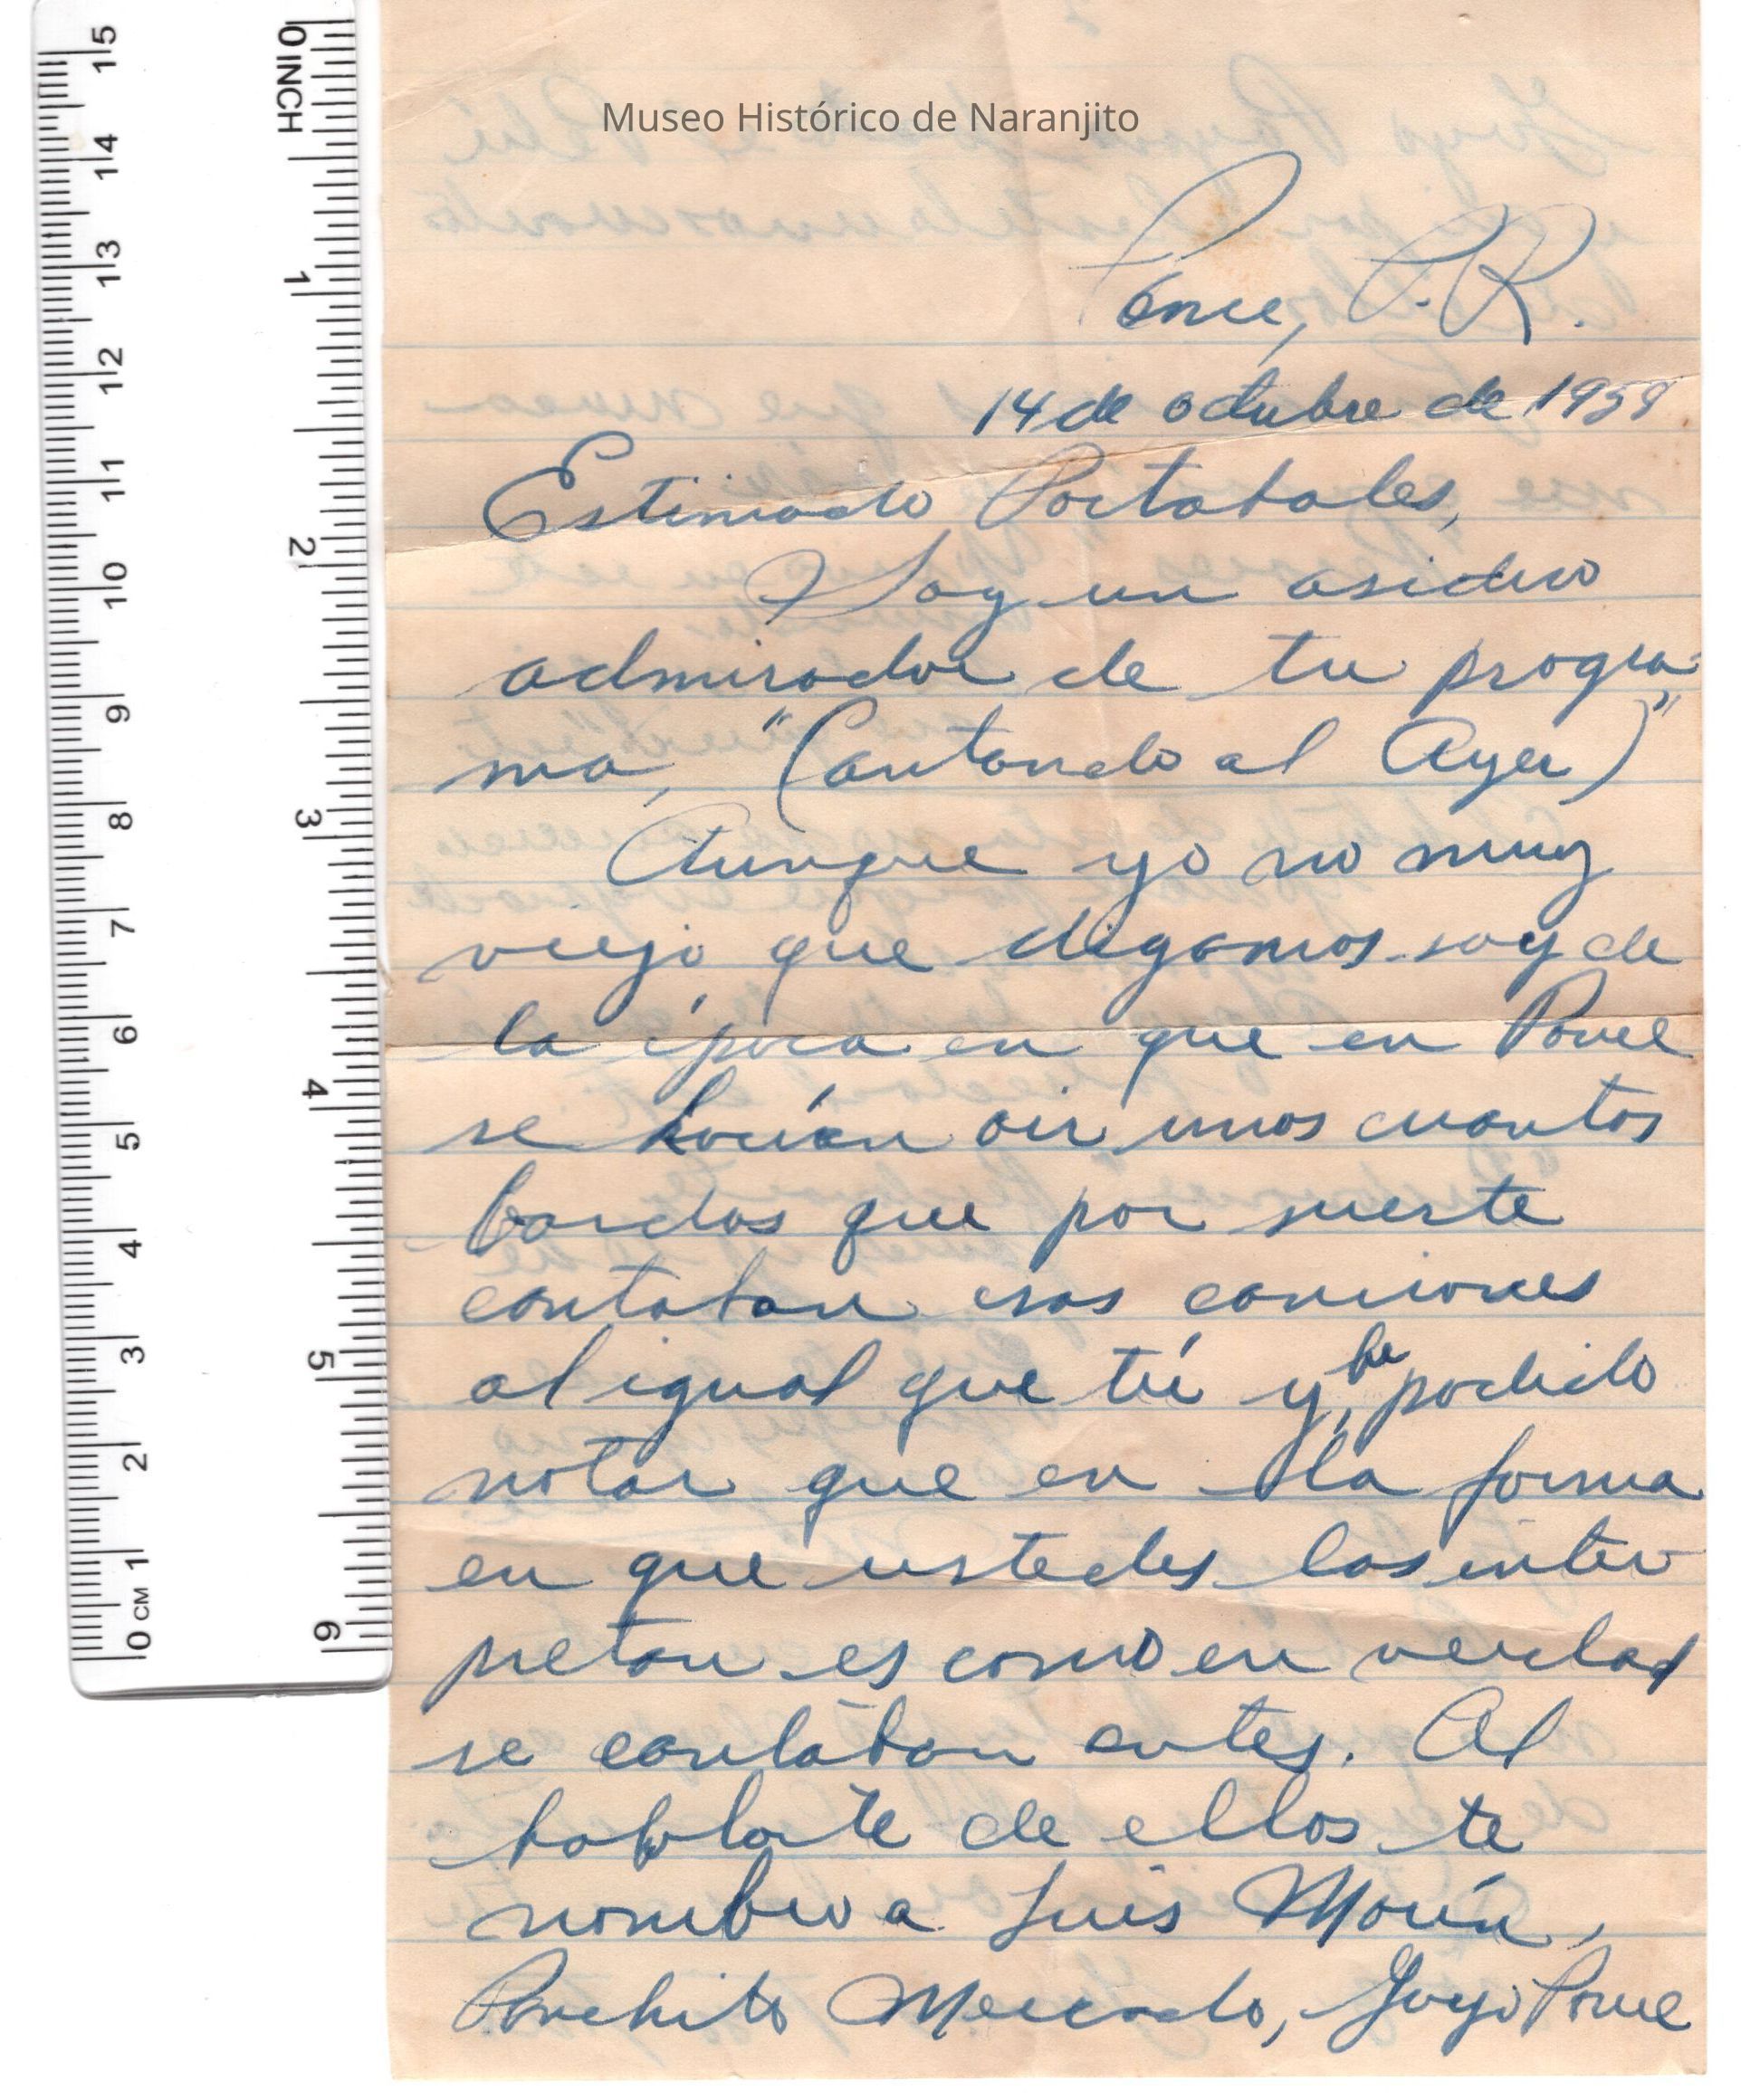 Museo Histórico de Naranjito
Ponce, P.R.
14 de octubre de 1959
Estimado Portabales,
Soy un asiduo
admirador de tu progra-
ma, "(Cantando al Ayer)"
Aunque yo no muy
viejo que digamos soy de
la época en que en Ponce
se hacían oir unos cuantos
bardos que por suerte
cantaban esas canciones
al igual que tú y he podido
notar que en la forma
en que ustedes las inter-
pretan es como en verdad
se cantaban antes. Al
hablarte de ellos te
nombro a Luis Morín,
Panchito Mercado, Yuyo Ponce
0 INCH 1 2 3 4 5 6
0 CM 1 2 3 4 5 6 7 8 9 10 11 12 13 14 15